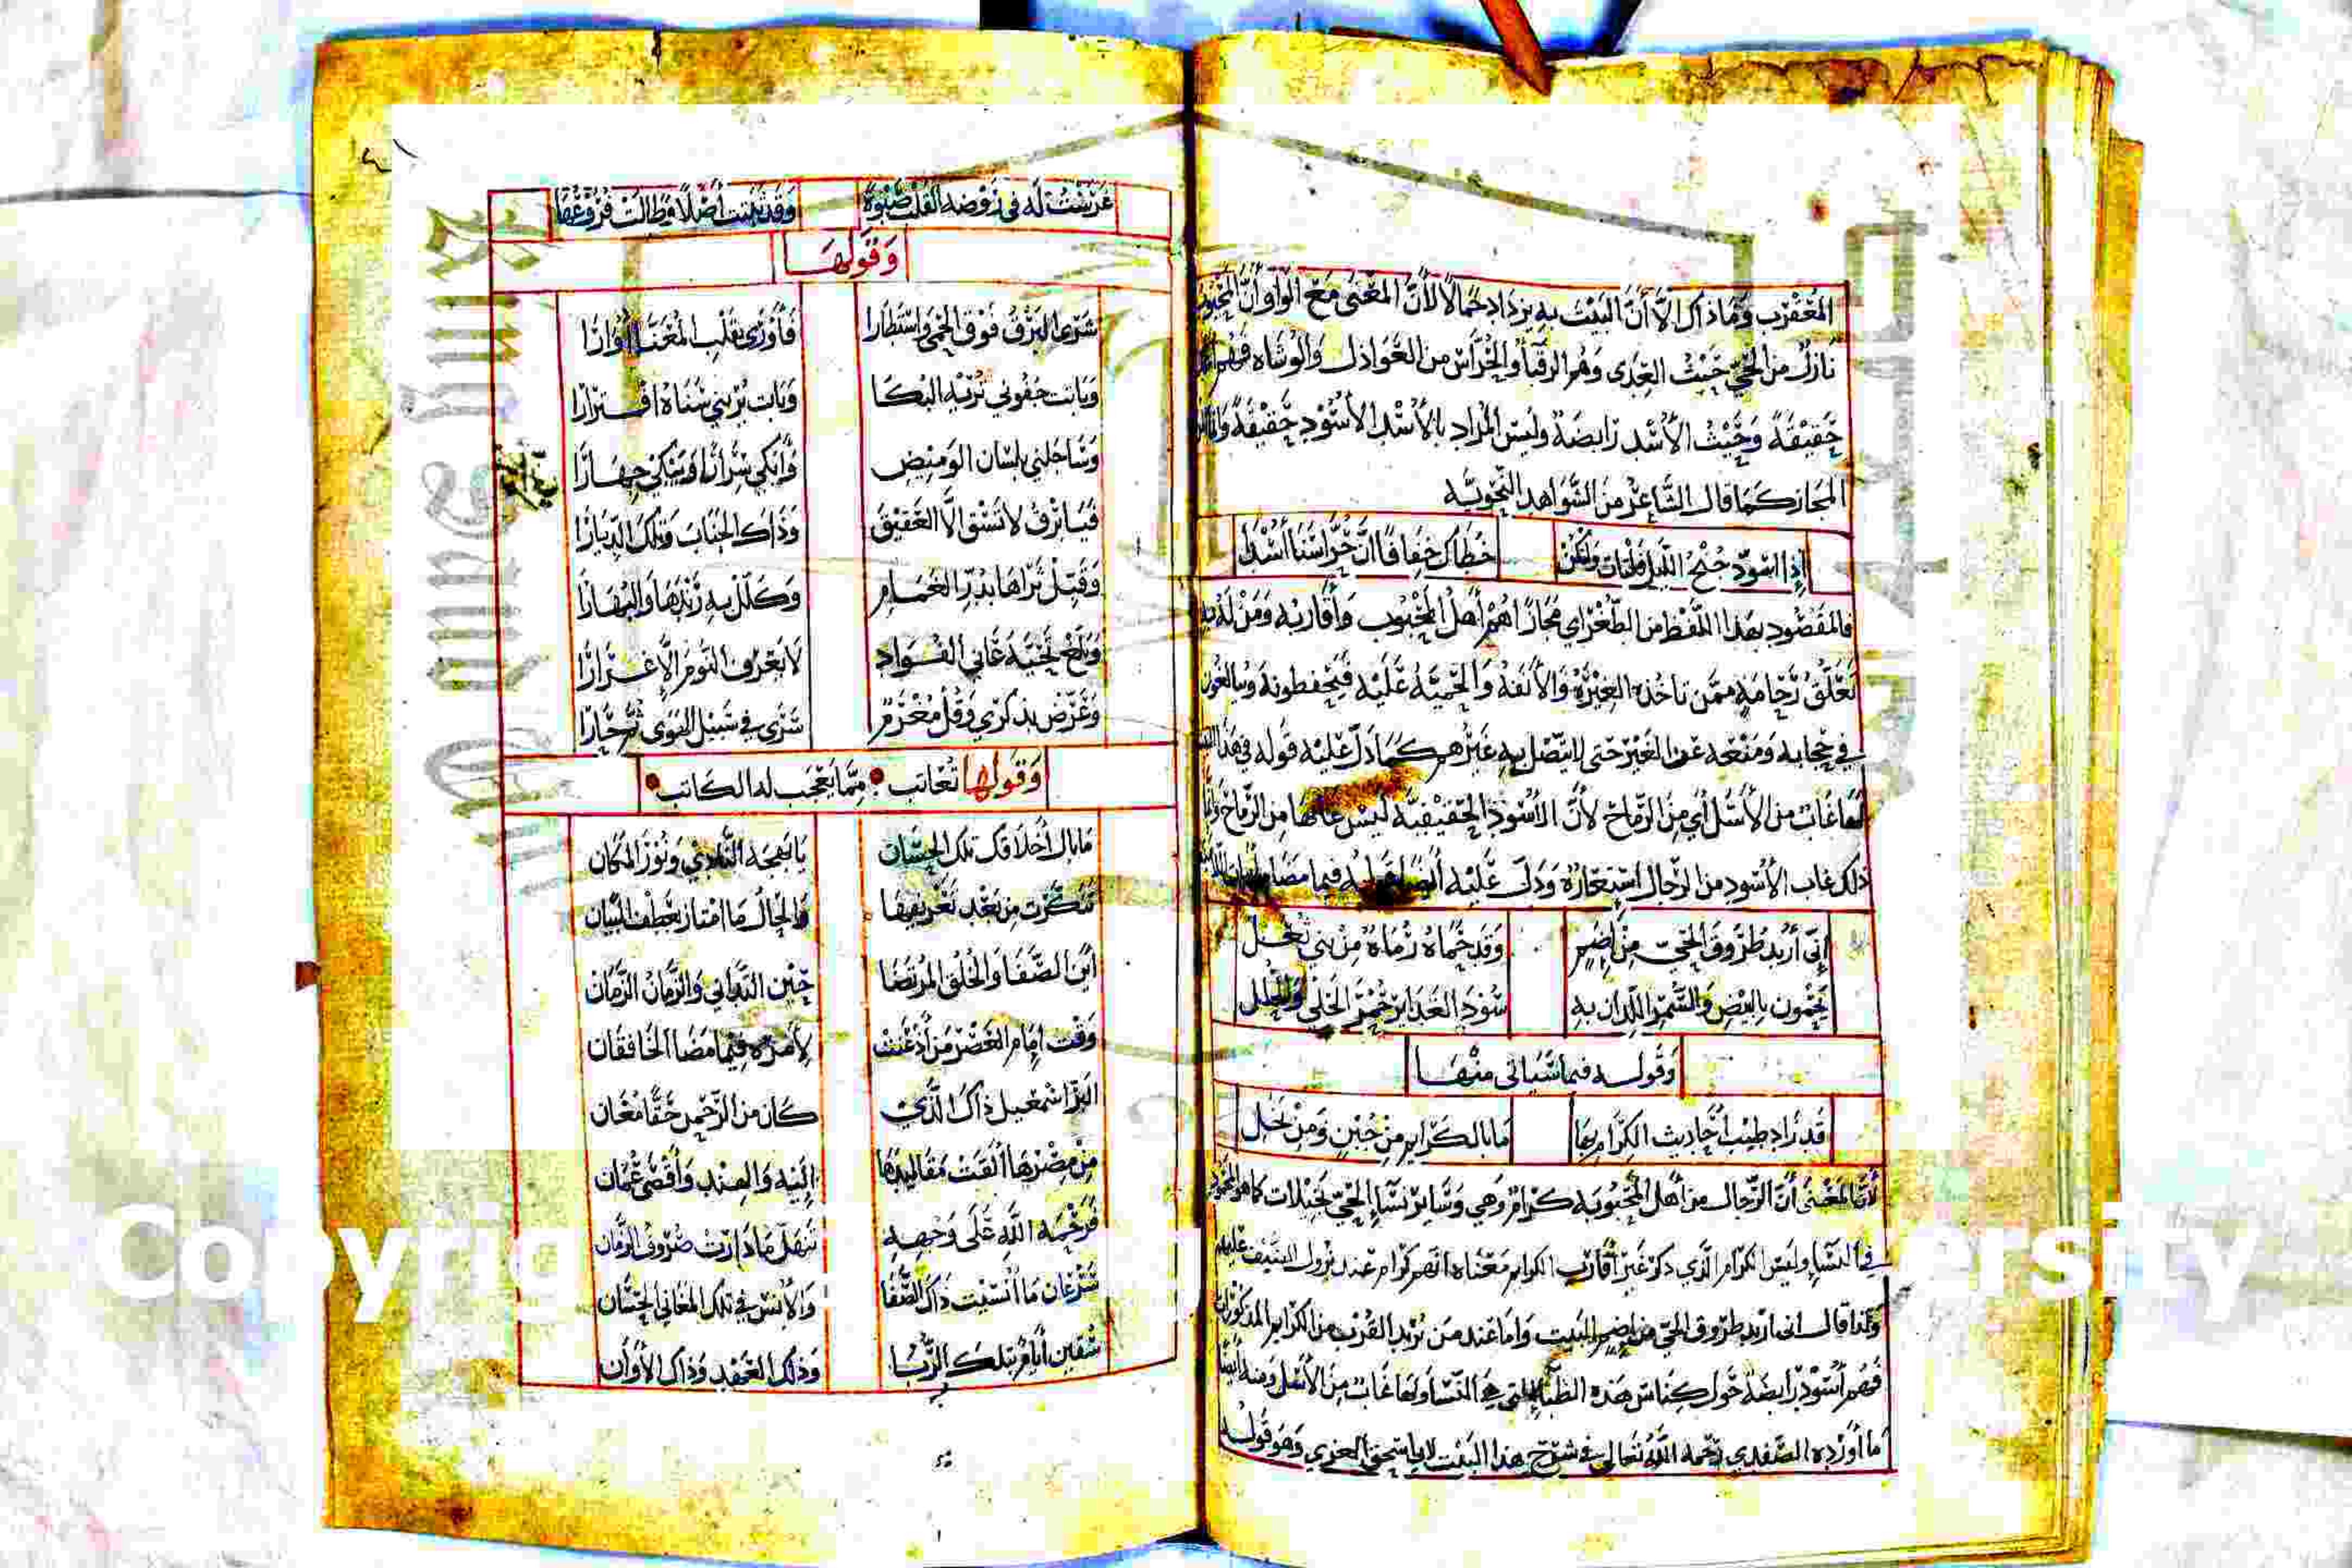 المعقرب وما ذاك الا أن البيت به يزداد جمالا لأن المعنى مع الواو أن
نازل من الحي حيث العدى وهو الرقبا والحراس من العواذل والوشاه
حقيقة وحيث الأسد رابضة وليس المراد بالأسد الأسود حقيقة
المجاز كما قال الشاعر من الشواهد النحوية
إذا اسود جنح الليل فلتات ولتكن خطاك خفافا ان حراسنا أسدا
فالمقصود بهذا اللفظ من الطغراي مجازا هم أهل المحبوب وأقاربه ومن له به
تعلق رحامة ممن تاخذه الغيرة والأنفة والحمية عليه فيحفظونه ويبالغون
في حجابه ومنعه عن الغير حتى لا يتصل به غيرهم كما دل عليه قوله في هذا
لها غابات من الأسل أي من الرماح لأن الأسود الحقيقية ليس غابها من الرماح
ذلك غاب الأسود من الرجال استعارة ودل عليه أيضا قوله فيما مضا
إني أريد طروق الحي من إضم وقد حماه رماة من بني ثعل
يحمون بالبيض والسمر اللدان به سود الغداير حمر الحلي والحلل
وقوله فيما سياتي منها
قد زاد طيب أحاديث الكرام بها ما بالكرايم من جبن ومن بخل
لأن المعنى أن الرجال من أهل المحبوبة كرام وهي وساير نساء الحي بخيلات كما هو
في النساء وليس الكرام الذي ذكر غير أقارب الكرايم معناه انهم كرام عند نزول الضيف عليهم
ولذا قال اني اريد طروق الحي من إضم البيت واما عند من يريد القرب من الكرايم المذكورات
فهم أسود رابضة حول كناس هذه الظباء التي هي النساء ولها غابات من الأسل ومنه أيضا
ما أورده الصفدي رحمه الله تعالى في شرح هذا البيت لابي اسحق الغزي وهو قوله
غرست له في روضة القلب صبوة وقد ثبتت أصلا وطالت فروعها
وقولها
شرى البرق فوق الحمى واستطارا فأورى بقلب المعنا أوارا
وباتت جفوني تريه البكا وبات يريني سناه افترارا
وساجلني بلسان الوميض وأبكي سرارا ويبكي جهارا
فيا برق لا تسق الا العقيق وذاك الجناب وتلك الديارا
وقبل ثراها بدر الغمام وكلل به رندها والبهارا
وبلغ تحية عاني الفؤاد لا يعرف النوم الا غرارا
وعرض بذكري وقل مغرم سرى في سبيل الهوى ثم حارا
وقولها تعاتب مما يعجب له الكاتب
ما بال أخلاقك تلك الحسان يا بهجة النادي ونور المكان
تنكرت من بعد تعريفها والحال ما امتاز بعطف البيان
أين الصفا والخلق المرتضا حين التداني والزمان الزمان
وقت إمام العصر من أذعنت لأمره فيما مضا الخافقان
البر اسمعيل ذاك الذي كان من الرحمن حقا معان
من مصرها ألقت مقاليدها إليه والهند وأقصى عمان
فرحمة الله على وجهه تنهل ما دارت صروف الزمان
سرعان ما أنسيت ذاك الصفا والأنس في تلك المغاني الحسان
سقين أيام بتلك الربا وذلك العهد وذاك الأوان